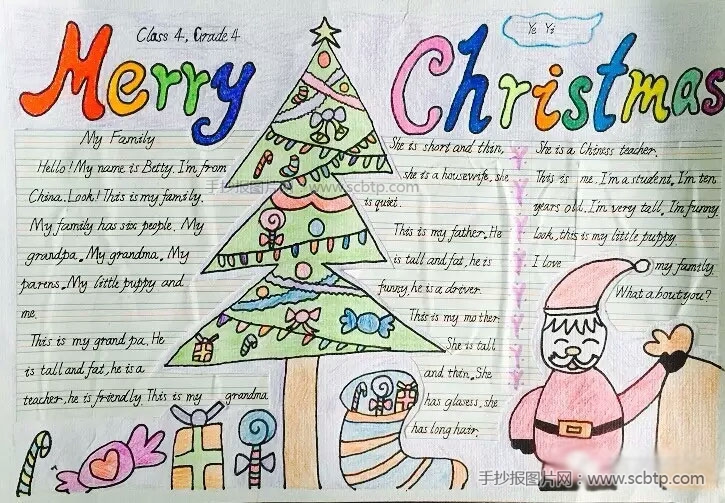 Class 4, Grade 4
Ye Yi
Merry Christmas
My Family
Hello! My name is Betty. I'm from
China. Look! This is my family.
My family has six people. My
grandpa. My grandma. My
parens. My little puppy and
me.
This is my grandpa. He
is tall and fat, he is a
teacher, he is friendly. This is my grandma
She is short and thin,
she is a housewife, she
is quiet.
This is my father. He
is tall and fat, he is
funny, he is a driver.
This is my mother.
She is tall
and thin. She
has glasess, she
has long hair.
She is a Chiness teacher.
This is me. I'm a student, I'm ten
years old. I'm very tall. I'm funny.
look, this is my little puppy.
I love my family
What about you?
手抄报图片网 www.scbtp.com
手抄报图片网：www.scbtp.com